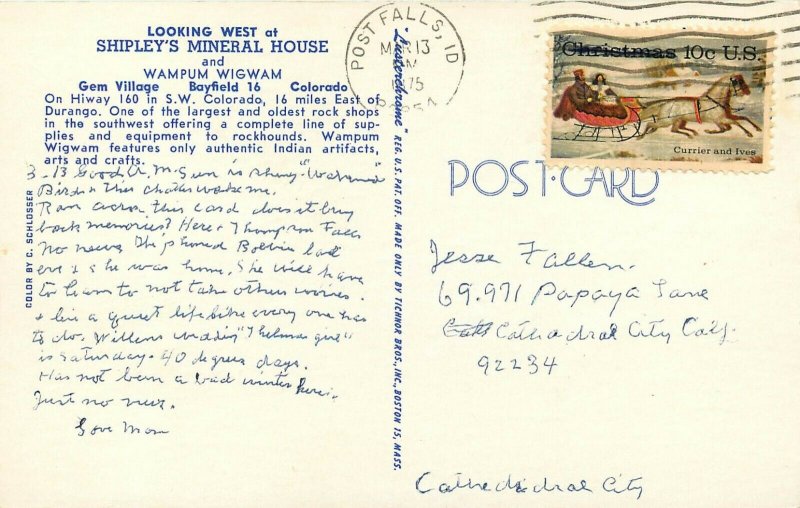 LOOKING WEST at
SHIPLEY'S MINERAL HOUSE
and
WAMPUM WIGWAM
Gem Village Bayfield 16 Colorado
On Hiway 160 in S.W. Colorado, 16 miles East of
Durango. One of the largest and oldest rock shops
in the southwest offering a complete line of sup-
plies and equipment to rockhounds. Wampum
Wigwam features only authentic Indian artifacts,
arts and crafts.
3-13 Good A.M. Sun is shiny "Warm"
Birds this chatter woke me.
Ran across this card does it bring
back memories? Here + Thompson Falls
No news. I phoned last
eve & she was home. She will have
to learn to not take others
+ live a quiet life like every one has
to do. Willens wedding "Thelmas girl"
is Saturday. 40 degrees days.
Has not been a bad winter here.
Just no news.
Love Mom
COLOR BY C. SCHLOSSER
"Lusterchrome" REG. U.S. PAT. OFF. MADE ONLY BY TICHNOR BROS., INC., BOSTON 15, MASS.
POST FALLS, ID
MAR 13
75
83854
Christmas 10c U.S.
Currier and Ives
POST CARD
Jesse Fallen.
69.971 Papaya Lane
Cathedral City Calif.
92234
Cathedral City